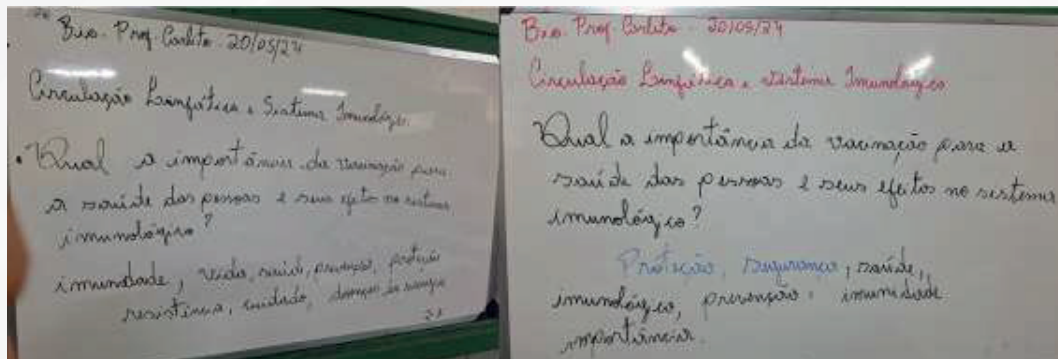 Bio. Prof. Carlito. 20/05/24
Circulação Linfática e Sistema Imunológico.
• Qual a importância da vacinação para
a saúde das pessoas e seus efeitos no sistema
imunológico?
imunidade, saúde, prevenção, proteção
resistência, cuidado, doenças
Bio. Prof. Carlito. 20/05/24
Circulação Linfática e Sistema Imunológico
Qual a importância da vacinação para a
saúde das pessoas e seus efeitos no sistema
imunológico?
Proteção, Segurança, saúde,
imunológico, prevenção, imunidade
importância.